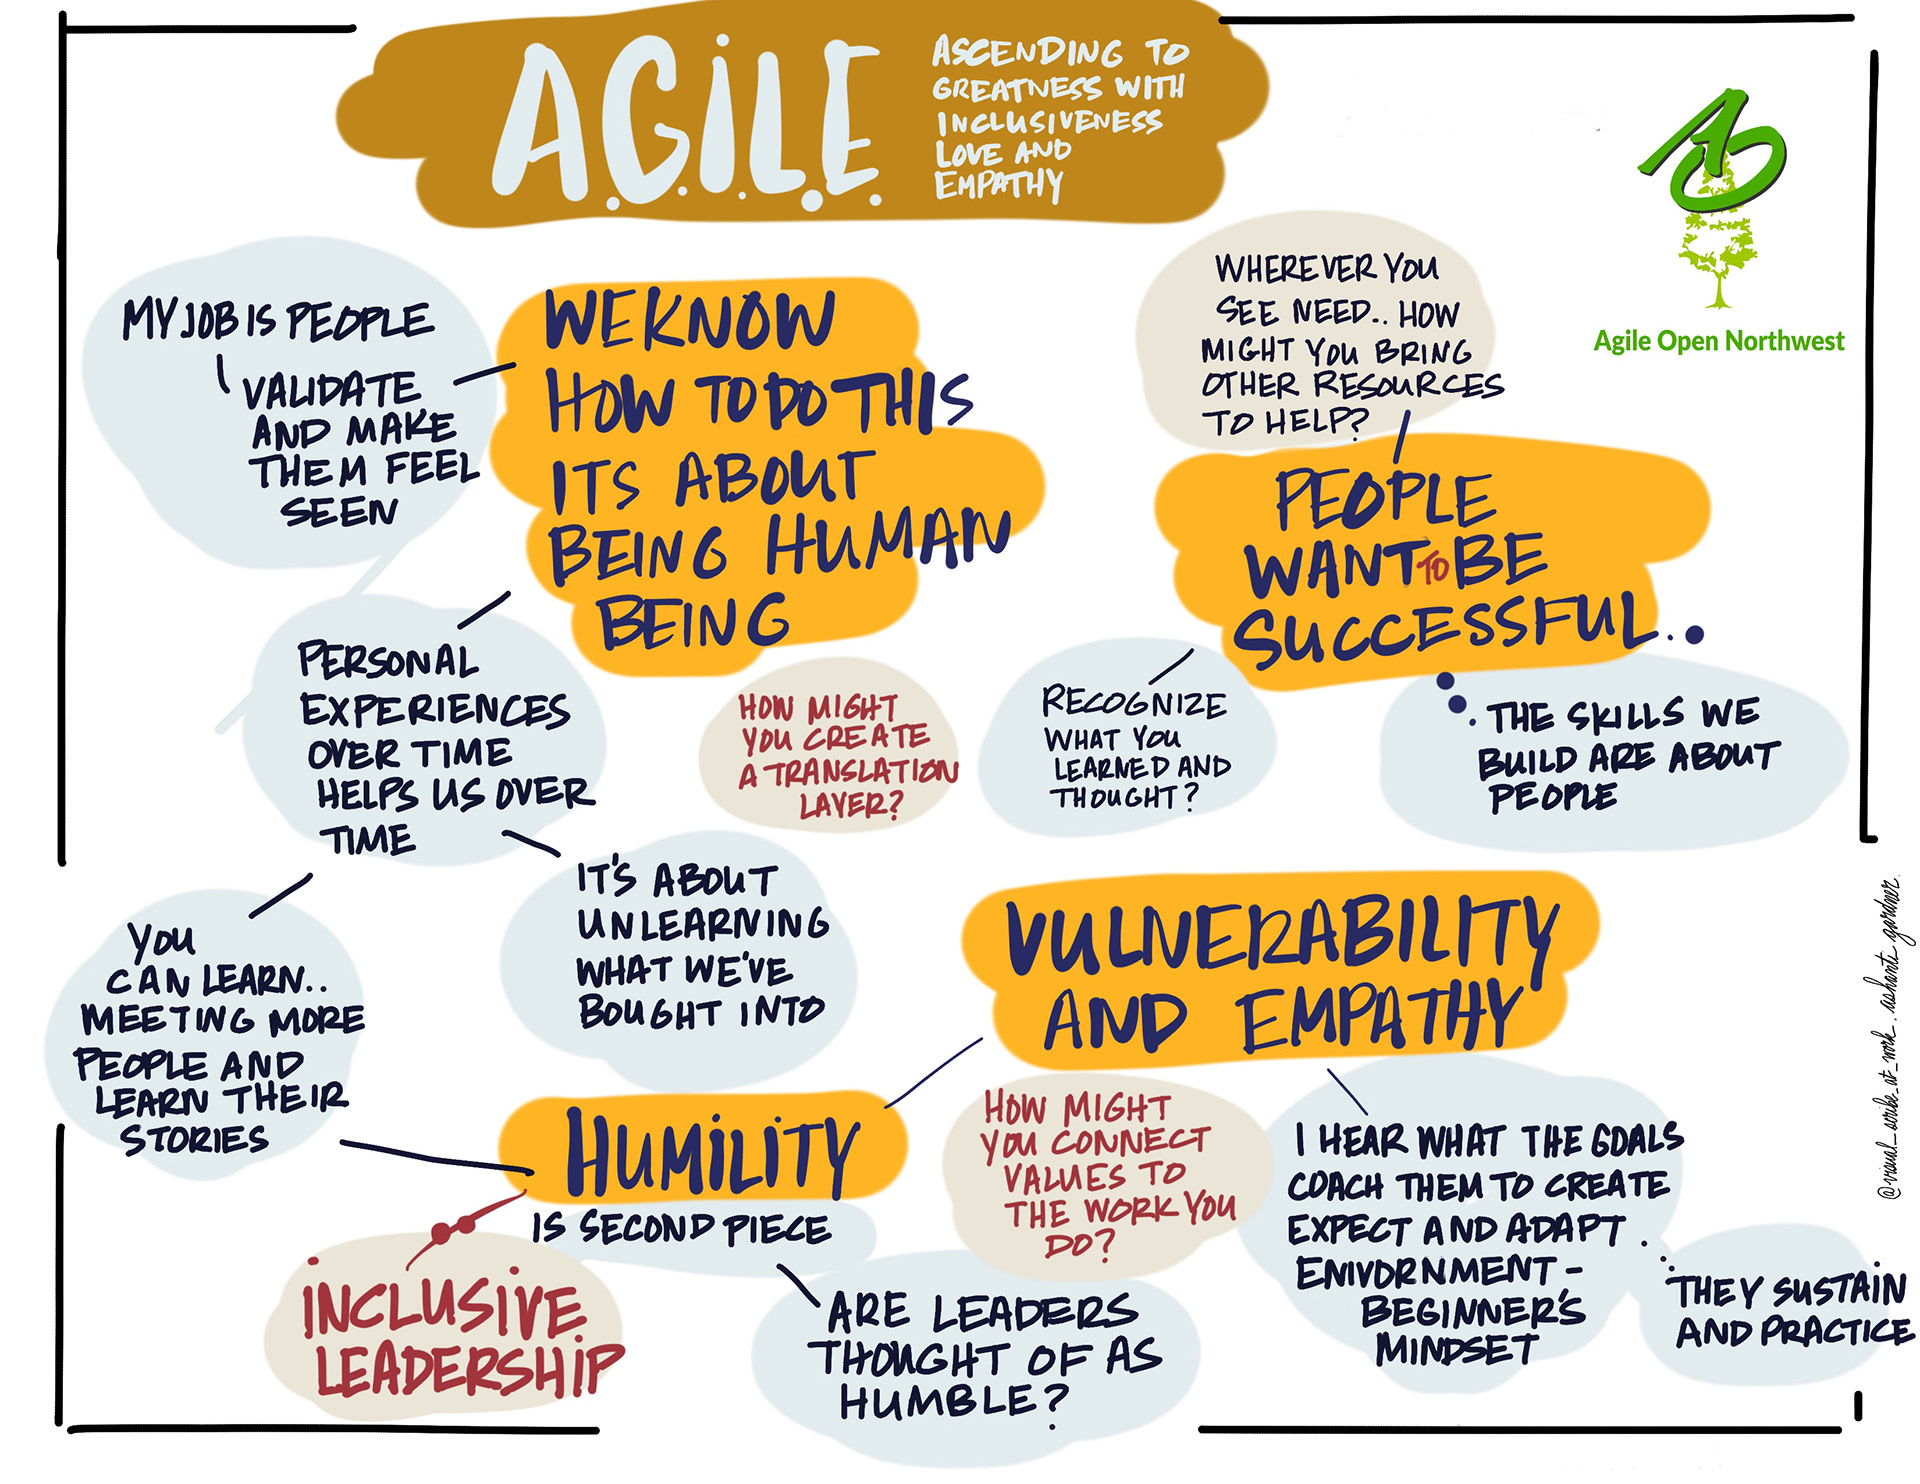 A.G.I.L.E.
ASCENDING TO
GREATNESS WITH
INCLUSIVENESS
LOVE AND
EMPATHY
Agile Open Northwest
MY JOB IS PEOPLE
VALIDATE
AND MAKE
THEM FEEL
SEEN
WE KNOW
HOW TO DO THIS
ITS ABOUT
BEING HUMAN
BEING
WHEREVER YOU
SEE NEED.. HOW
MIGHT YOU BRING
OTHER RESOURCES
TO HELP?
PEOPLE
WANT TO BE
SUCCESSFUL...
PERSONAL
EXPERIENCES
OVER TIME
HELPS US OVER
TIME
HOW MIGHT
YOU CREATE
A TRANSLATION
LAYER?
RECOGNIZE
WHAT YOU
LEARNED AND
THOUGHT?
THE SKILLS WE
BUILD ARE ABOUT
PEOPLE
YOU
CAN LEARN..
MEETING MORE
PEOPLE AND
LEARN THEIR
STORIES
IT'S ABOUT
UNLEARNING
WHAT WE'VE
BOUGHT INTO
VULNERABILITY
AND EMPATHY
HUMILITY
IS SECOND PIECE
INCLUSIVE
LEADERSHIP
ARE LEADERS
THOUGHT OF AS
HUMBLE?
HOW MIGHT
YOU CONNECT
VALUES TO
THE WORK YOU
DO?
I HEAR WHAT THE GOALS
COACH THEM TO CREATE
EXPECT AND ADAPT.
ENIVORNMENT -
BEGINNER'S
MINDSET
THEY SUSTAIN
AND PRACTICE
@visual_scribe_at_work. ashanti gardner.